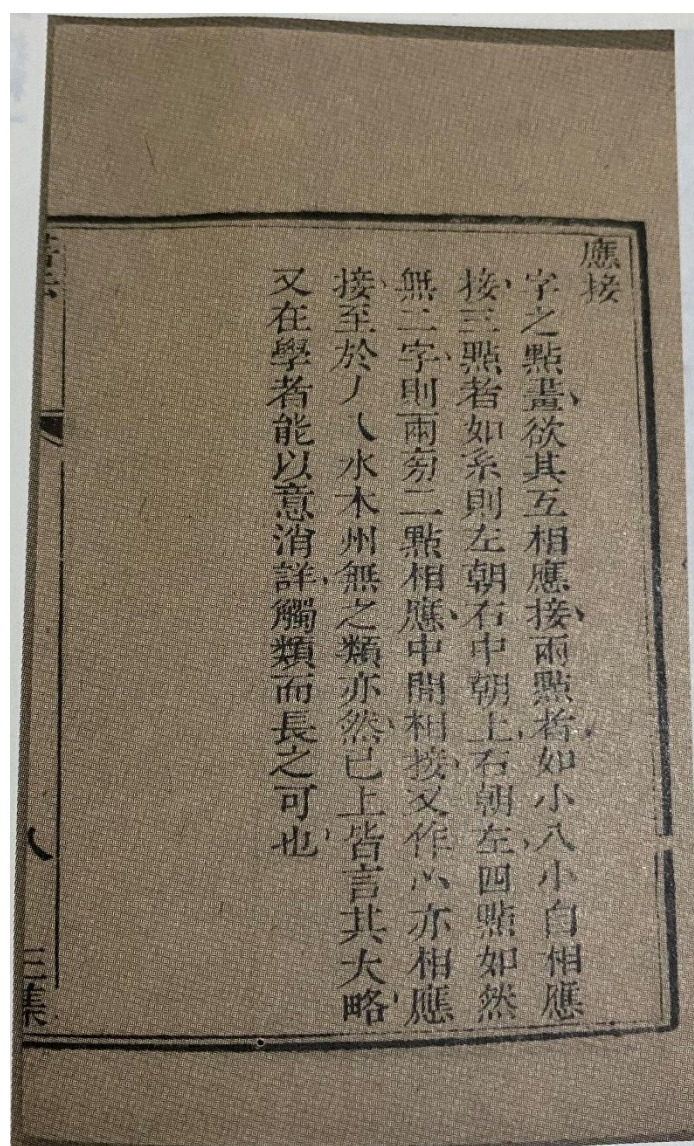 應接
字之點畫欲其互相應接兩點者如小八小自相應
接三點者如糸則左朝右中朝上右朝左四點如然
無二字則兩旁二點相應中間相接又作灬亦相應
接至於丿乀水木州無之類亦然已上皆言其大略
又在學者能以意消詳觸類而長之可也
八
三集